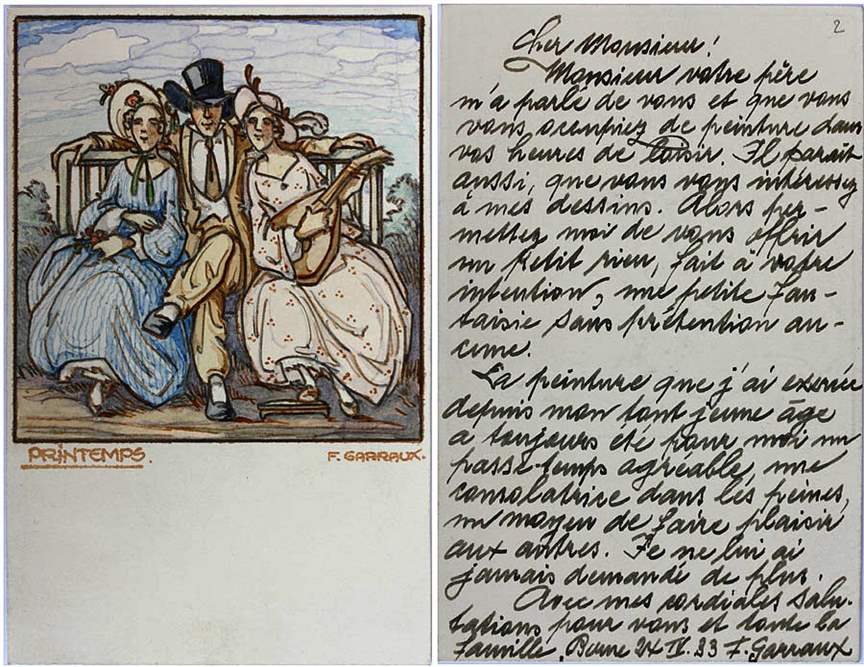 PRINTEMPS.
F. GARRAUX.
2
Cher Monsieur!
Monsieur votre père
m'a parlé de vous et que vous
vous occupiez de peinture dans
vos heures de loisir. Il parait
aussi, que vous vous intéressez
à mes dessins. Alors per-
mettez moi de vous offrir
un petit rien, fait à votre
intention, une petite fan-
taisie sans prétention au-
cune.
La peinture que j'ai exercée
depuis mon tout jeune âge
a toujours été pour moi un
passe-temps agréable, une
consolatrice dans les peines,
un moyen de faire plaisir
aux autres. Je ne lui ai
jamais demandé de plus.
Avec mes cordiales salu-
tations pour vous et toute la
famille. Berne 24 IV. 23 F. Garraux